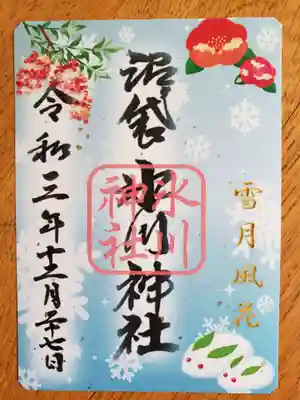 雪月風花
沼袋氷川神社
氷川
神社
令和三年十二月二十七日